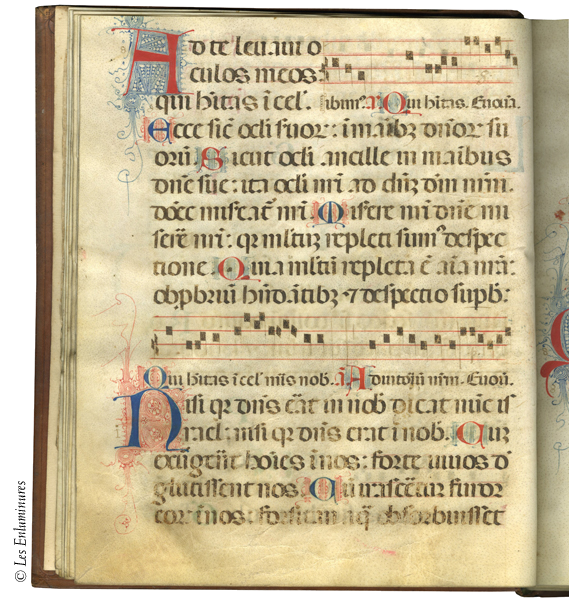 Ad te leuaui o
culos meos:
qui hitas i cel' ibim9. a. Qui hitas. Euoua.
Ecce sic ocli suor: i maibz dnor su
oru Sicut ocli ancille in manibus
dne sue: ita ocli nri ad dm nrm.
donec misereat nri. Misere nri dne mi
serere nri: qr multuz repleti sum9 despec
tione. Quia multu repleta e aia nra:
obprbriu hndatibz 7 despectio supb:
Qui hitas i cel' mis nob. a. Adiutoriu nrm. Euoua.
Nisi qr dns erat in nob dicat nuc is
rael: nisi qr dns erat i nob. Cuz
exurgeret hoies i nos: forte uiuos d
glutissent nos. Cu irasceretur furor
eor i nos: forsitan aq obsorbuisset
© Les Enluminures